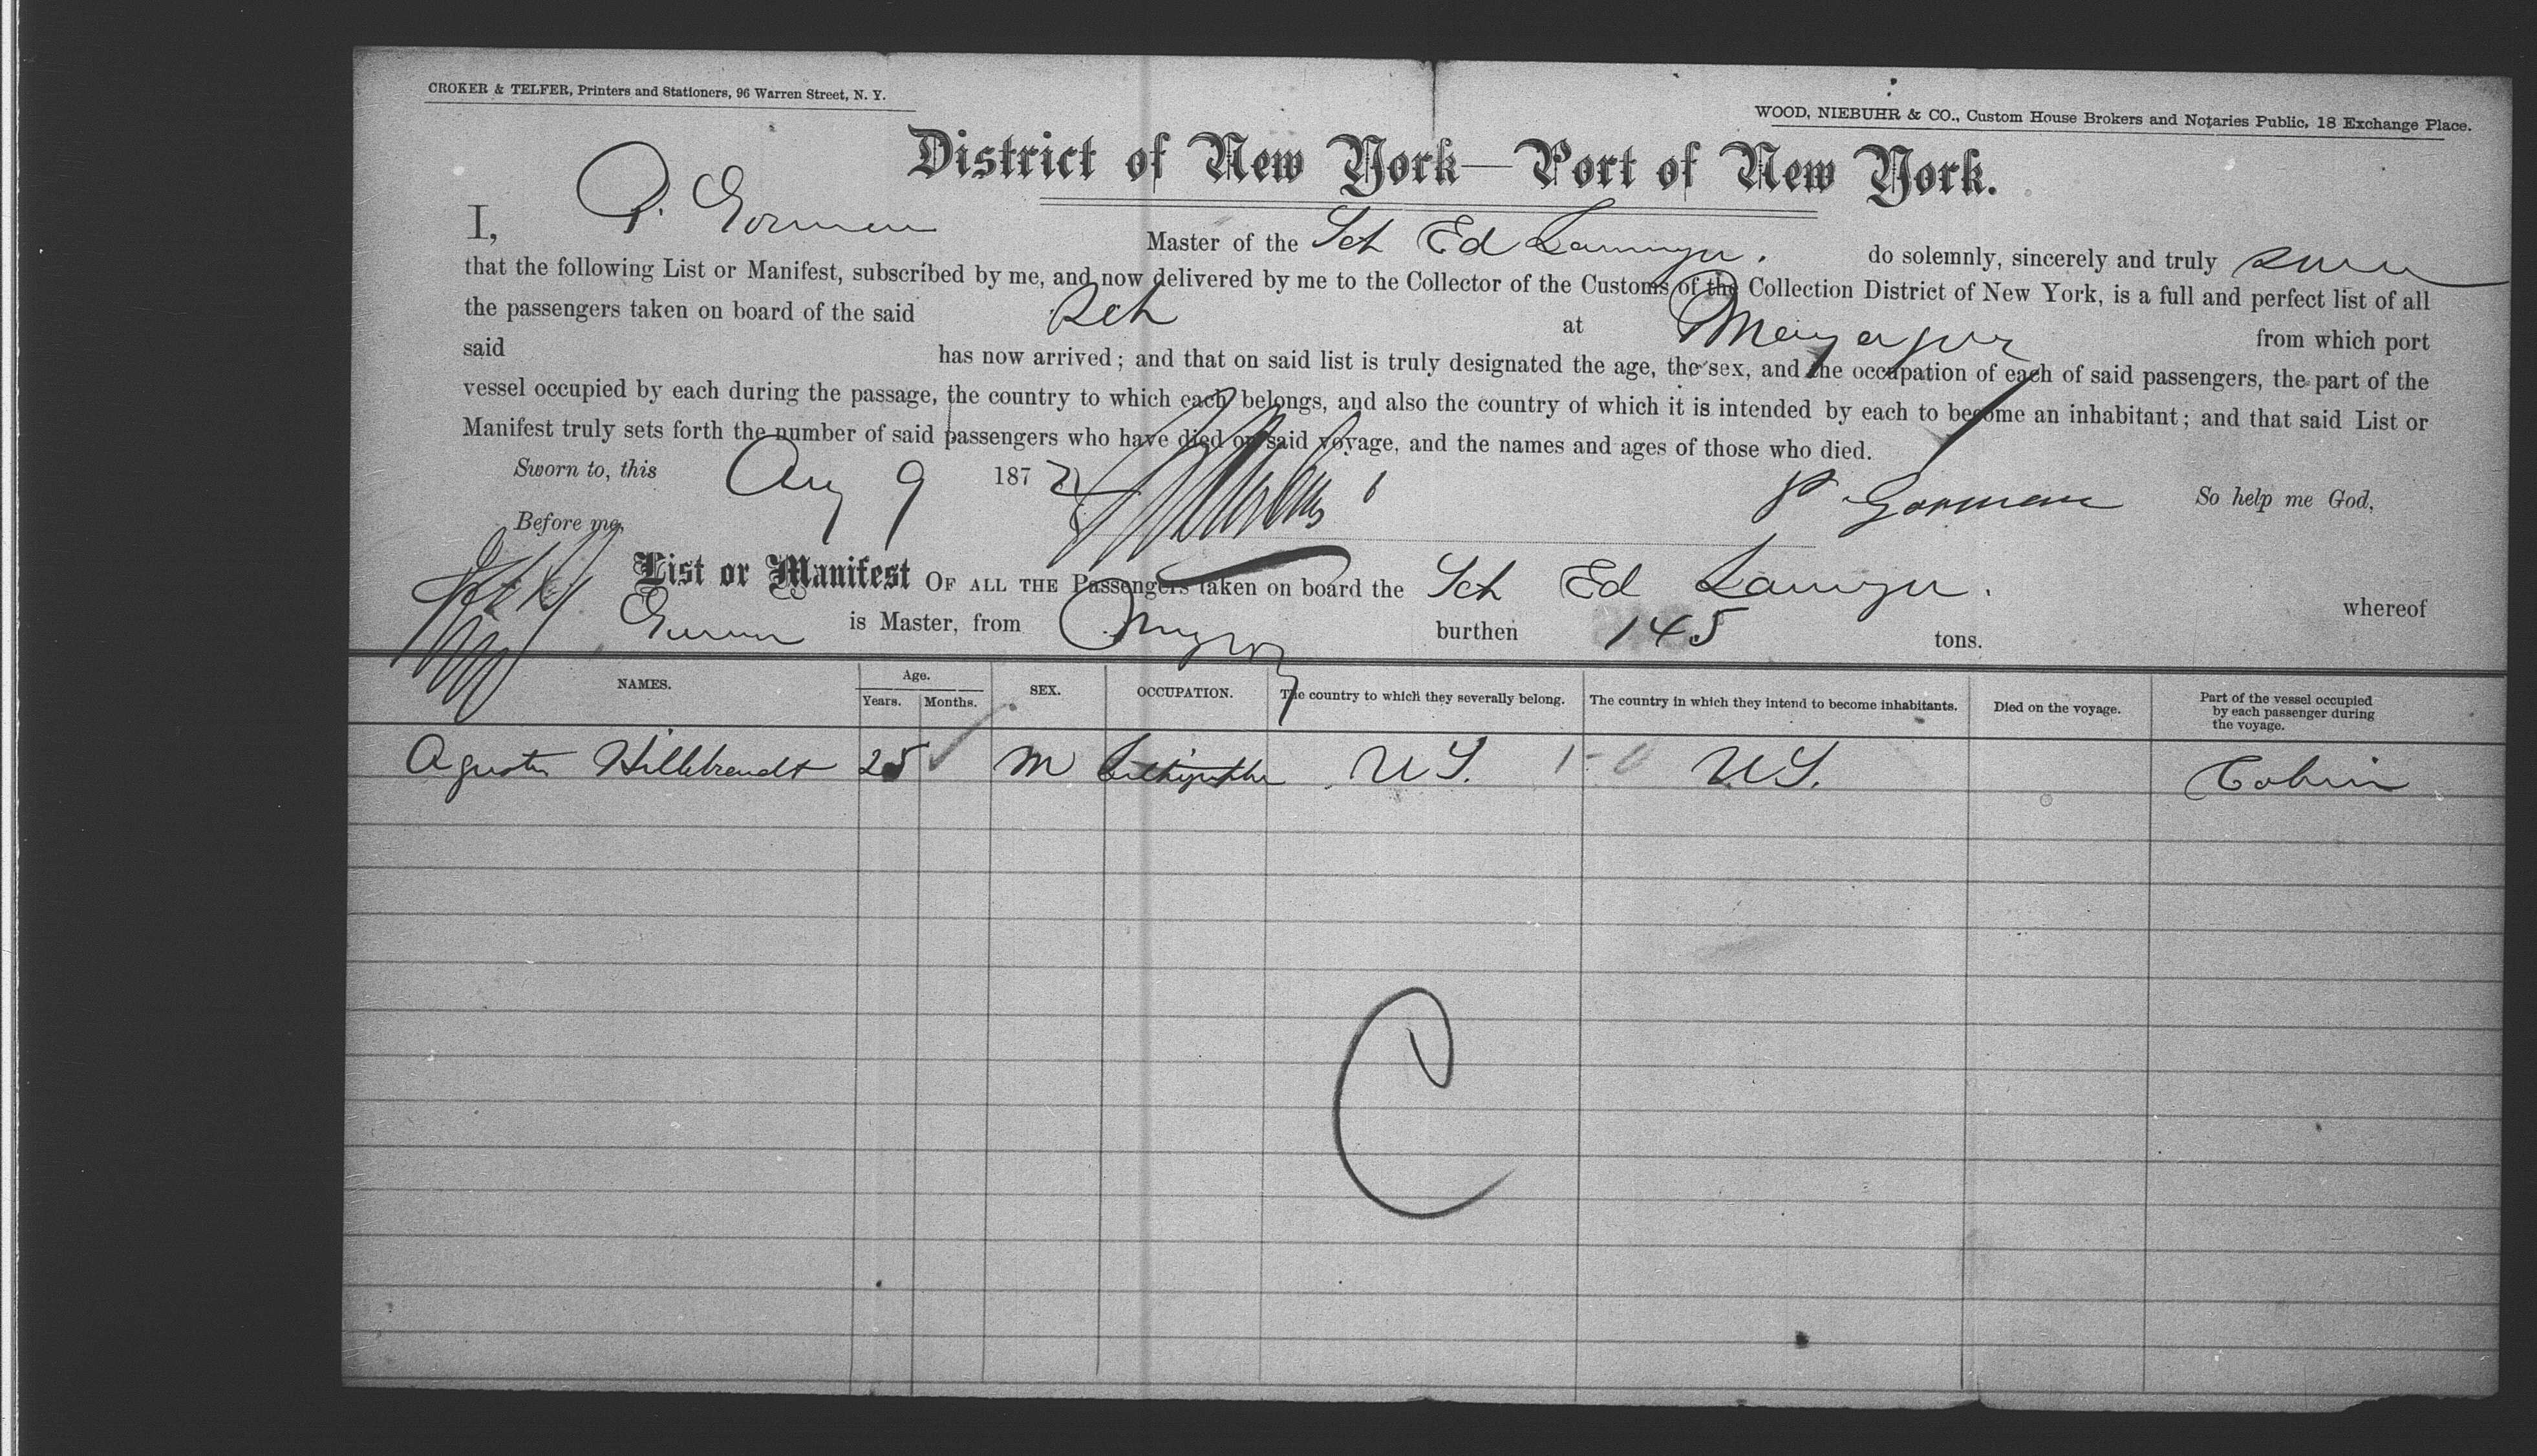 CROKER & TELFER, Printers and Stationers, 96 Warren Street, N. Y.
WOOD, NIEBUHR & CO., Custom House Brokers and Notaries Public, 18 Exchange Place.
District of New York—Port of New York.
I, P. Gorman Master of the Sch Ed do solemnly, sincerely and truly
that the following List or Manifest, subscribed by me, and now delivered by me to the Collector of the Customs of the Collection District of New York, is a full and perfect list of all
the passengers taken on board of the said Sch at from which port
said has now arrived; and that on said list is truly designated the age, the sex, and the occupation of each of said passengers, the part of the
vessel occupied by each during the passage, the country to which each belongs, and also the country of which it is intended by each to become an inhabitant; and that said List or
Manifest truly sets forth the number of said passengers who have died on said voyage, and the names and ages of those who died.
Sworn to, this Aug 9 187 P Gorman So help me God,
Before me,
List or Manifest OF ALL THE Passengers taken on board the Sch Ed whereof
is Master, from burthen 145 tons.
NAMES. Age. Years. Months. SEX. OCCUPATION. The country to which they severally belong. The country in which they intend to become inhabitants. Died on the voyage. Part of the vessel occupied by each passenger during the voyage.
Hillebrandt 25 M U S. U.S. Cabin
C